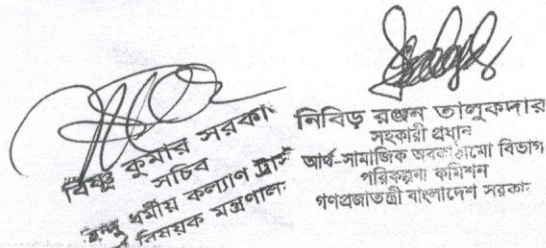 বিষ্ণু কুমার সরকা
সচিব
হিন্দু ধর্মীয় কল্যাণ ট্রাস্ট
বিষয়ক মন্ত্রণাল
নিবিড় রঞ্জন তালুকদার
সহকারী প্রধান
আর্থ-সামাজিক অবকাঠামো বিভাগ
পরিকল্পনা কমিশন
গণপ্রজাতন্ত্রী বাংলাদেশ সরকা